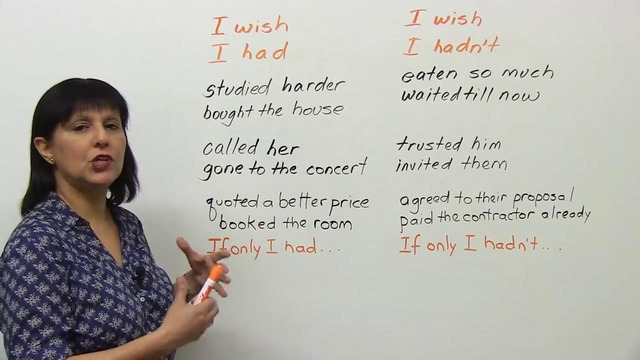 I wish
I had
studied harder
bought the house
called her
gone to the concert
quoted a better price
booked the room
If only I had...
I wish
I hadn't
eaten so much
waited till now
trusted him
invited them
agreed to their proposal
paid the contractor already
If only I hadn't...